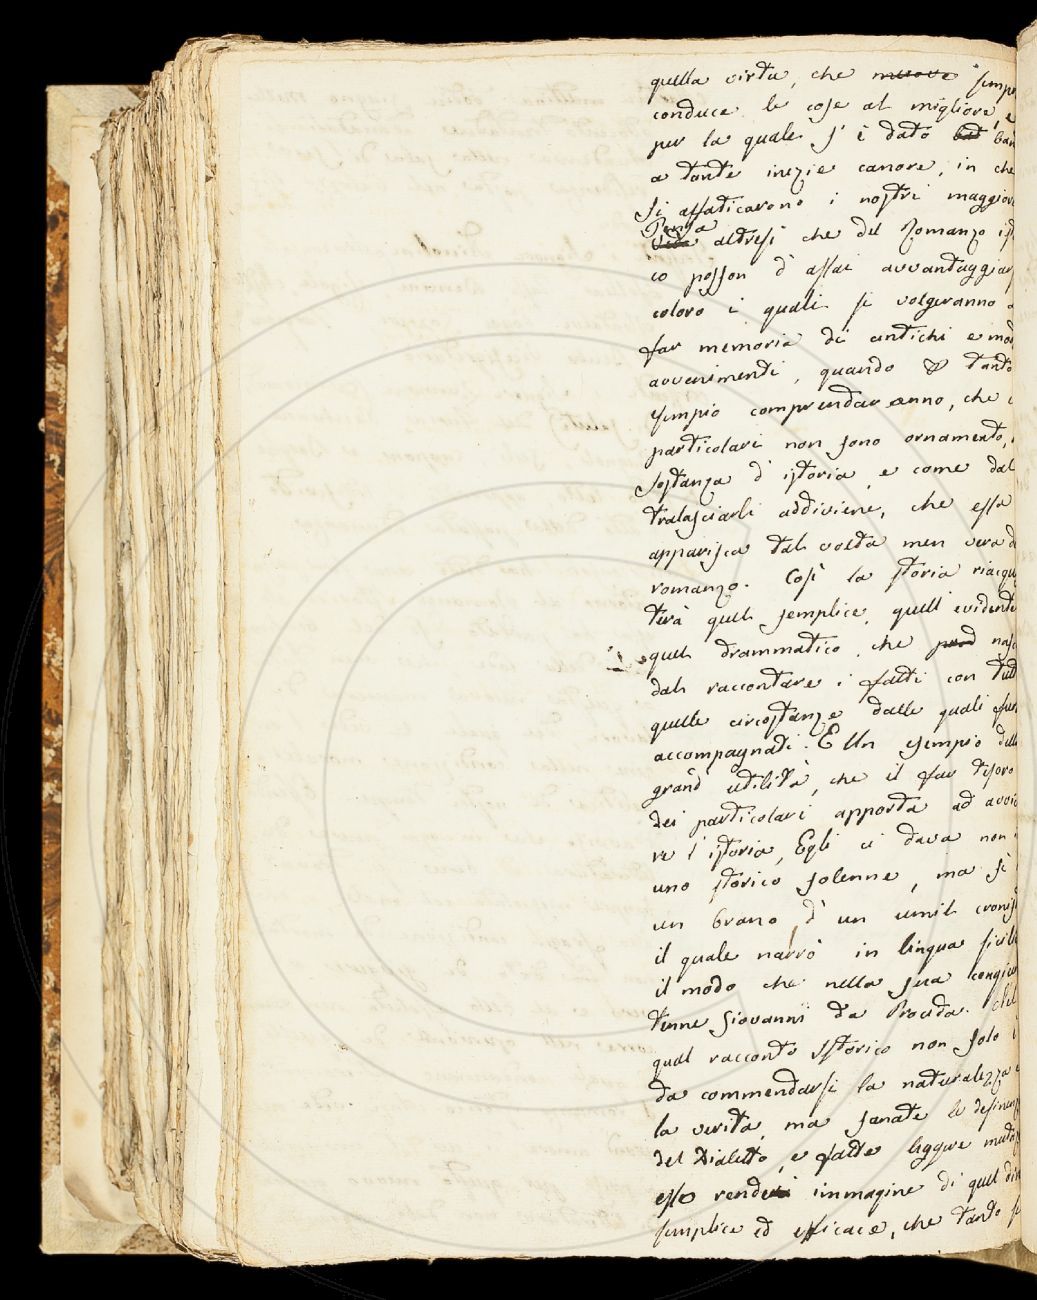 quella virtu, che muove sempr
conduce le cose al migliore, e
per la quale s' è dato bat ban
a tante inezie canore, in che
si affaticarono i nostri maggior
Penso
altresi che del Romanzo ist
co posson d' assai avvantaggiar
coloro i quali si volgeranno a
far memoria di antichi e mod
avvenimenti, quando tanto
sempio comprenderanno, che i
particolari non sono ornamento,
sostanza d' istoria, e come dal
tralasciarli addiviene, che essa
apparisca tal volta men vera d
romanzo. Così la storia riacqu
terà quel semplice, quell' evidente
quel drammatico, che può nasc
dal raccontare i fatti con tutt
quelle circostanze dalle quali fur
accompagnati. E Un esempio dell
grand' utilità, che il far tesoro
dei particolari apporta ad avvi
re l' istoria, Egli ci dava non
uno storico solenne, ma sì
un brano d' un umil cronis
il quale narrò in lingua sicil
il modo che nella sua congiu
tenne Giovanni da Procida. Nel
qual racconto Istorico non solo
da commendarsi la naturalezza e
la verità, ma sanate le desinenz
del Dialetto, e fatte leggere mutaz
esso rendesi immagine di quel dir
semplice ed efficace, che tanto s